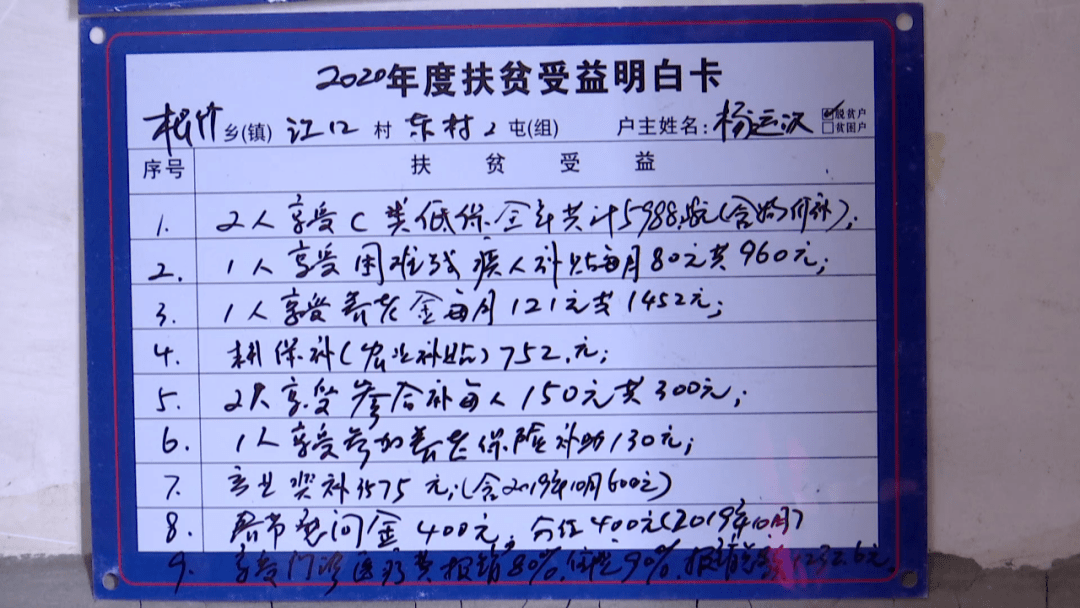 2020年度扶贫受益明白卡
松竹乡(镇) 江口村 东村2屯(组) 户主姓名:杨运汉 脱贫户 贫困户
序号 扶贫受益
1. 2人享受C类低保全年共计5988.元(含物价补);
2. 1人享受困难残疾人补贴每月80元共960元;
3. 1人享受养老金每月121元共1452元;
4. 耕保补(农业补贴)752.元;
5. 2人享受参合补每人150元共300元;
6. 1人享受参加养老保险补助130元;
7. 产业奖补3575元;(含2019年10月600元)
8. 春节慰问金400元, 400元(2019年10月)
9. 享受门诊医疗费报销80%,住院90%,报销 元